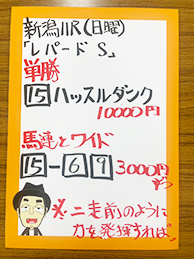 新潟11R(日曜)
「レパードS」
単勝
15 ハッスルダンク
10000円
馬連とワイド
15-6 9 3000円
ずつ
※二走前のように
力を発揮すれば。